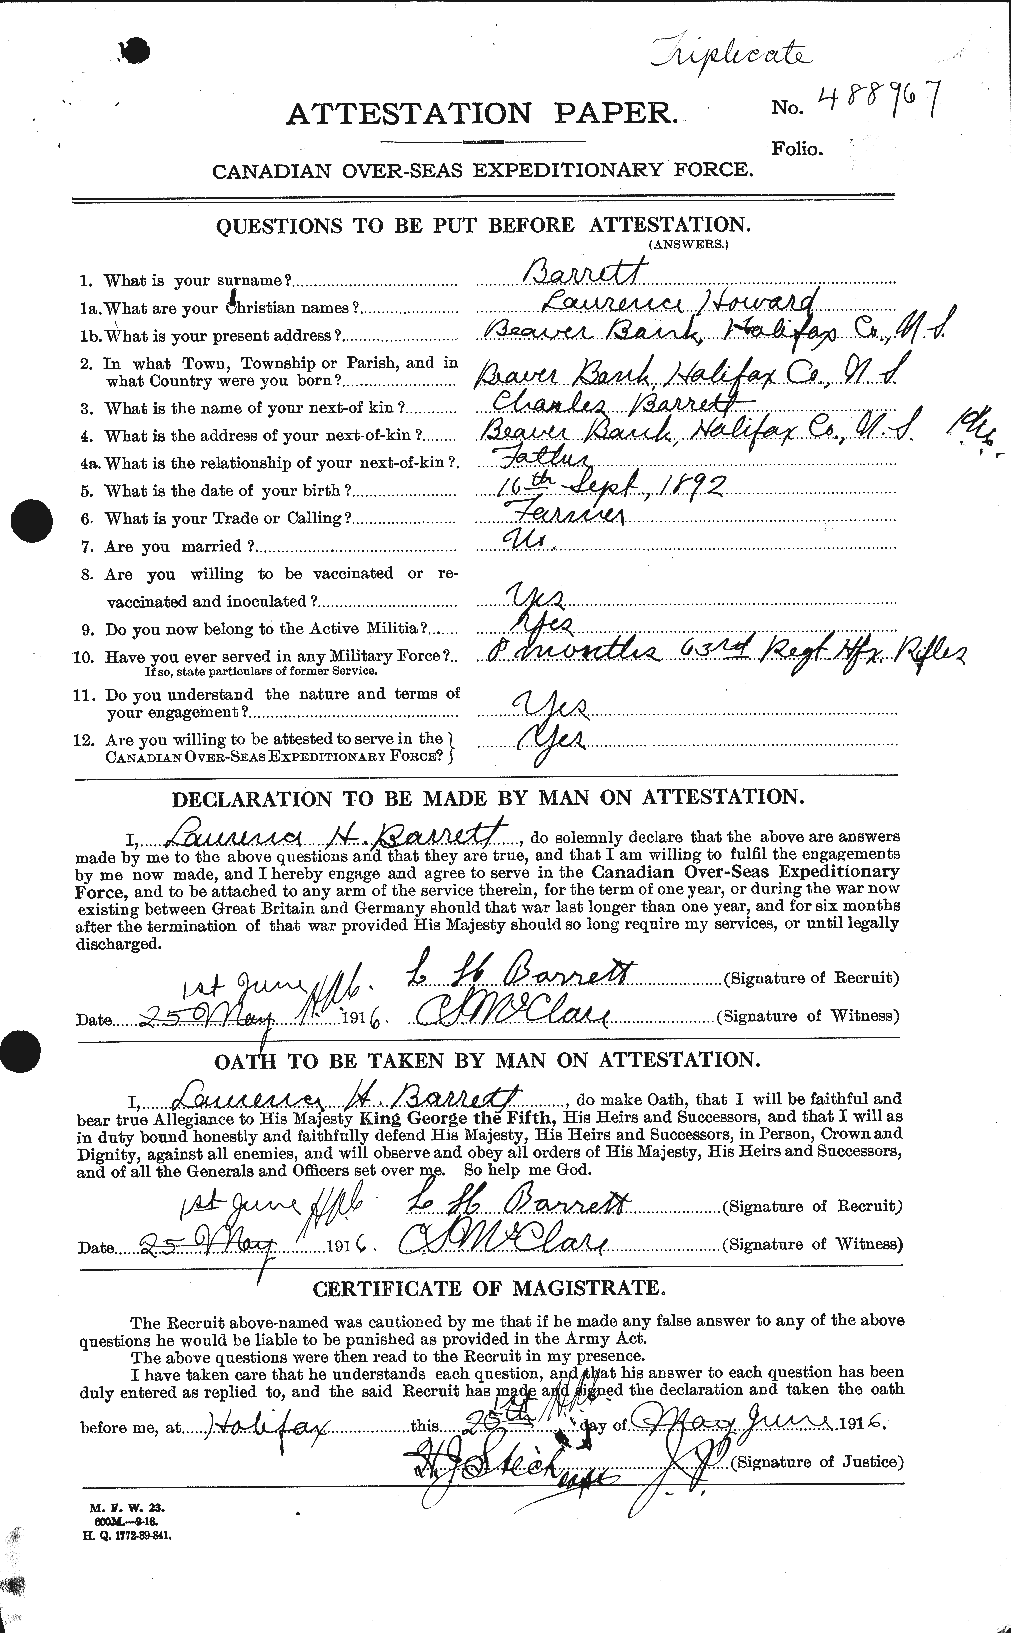 Triplicate
ATTESTATION PAPER.
No. 488967
Folio.
CANADIAN OVER-SEAS EXPEDITIONARY FORCE.
QUESTIONS TO BE PUT BEFORE ATTESTATION.
(ANSWERS.)
1. What is your surname? Barrett
1a. What are your Christian names? Laurence Howard
1b. What is your present address? Beaver Bank, Halifax Co., N.S.
2. In what Town, Township or Parish, and in
what Country were you born? Beaver Bank, Halifax Co., N.S.
3. What is the name of your next-of kin? Charles Barrett
4. What is the address of your next-of-kin? Beaver Bank, Halifax Co., N.S.
4a. What is the relationship of your next-of-kin? Father
5. What is the date of your birth? 16th Sept, 1892
6. What is your Trade or Calling? Farmer
7. Are you married? No.
8. Are you willing to be vaccinated or re-
vaccinated and inoculated? Yes
9. Do you now belong to the Active Militia? Yes
10. Have you ever served in any Military Force? 8 months 63rd Regt Hfx. Rifles
If so, state particulars of former Service.
11. Do you understand the nature and terms of
your engagement? Yes
12. Are you willing to be attested to serve in the
CANADIAN OVER-SEAS EXPEDITIONARY FORCE? } Yes
DECLARATION TO BE MADE BY MAN ON ATTESTATION.
I, Laurence H. Barrett, do solemnly declare that the above are answers
made by me to the above questions and that they are true, and that I am willing to fulfil the engagements
by me now made, and I hereby engage and agree to serve in the Canadian Over-Seas Expeditionary
Force, and to be attached to any arm of the service therein, for the term of one year, or during the war now
existing between Great Britain and Germany should that war last longer than one year, and for six months
after the termination of that war provided His Majesty should so long require my services, or until legally
discharged.
1st June L H Barrett (Signature of Recruit)
Date 25 May 1916. McClare (Signature of Witness)
OATH TO BE TAKEN BY MAN ON ATTESTATION.
I, Laurence H. Barrett, do make Oath, that I will be faithful and
bear true Allegiance to His Majesty King George the Fifth, His Heirs and Successors, and that I will as
in duty bound honestly and faithfully defend His Majesty, His Heirs and Successors, in Person, Crown and
Dignity, against all enemies, and will observe and obey all orders of His Majesty, His Heirs and Successors,
and of all the Generals and Officers set over me. So help me God.
1st June L H Barrett (Signature of Recruit)
Date 25 May 1916. McClare (Signature of Witness)
CERTIFICATE OF MAGISTRATE.
The Recruit above-named was cautioned by me that if he made any false answer to any of the above
questions he would be liable to be punished as provided in the Army Act.
The above questions were then read to the Recruit in my presence.
I have taken care that he understands each question, and that his answer to each question has been
duly entered as replied to, and the said Recruit has made and signed the declaration and taken the oath
1st
before me, at Halifax this 25th day of May June 1916.
J.P. (Signature of Justice)
M. F. W. 23.
600M.—2-16.
H. Q. 1772-39-841.